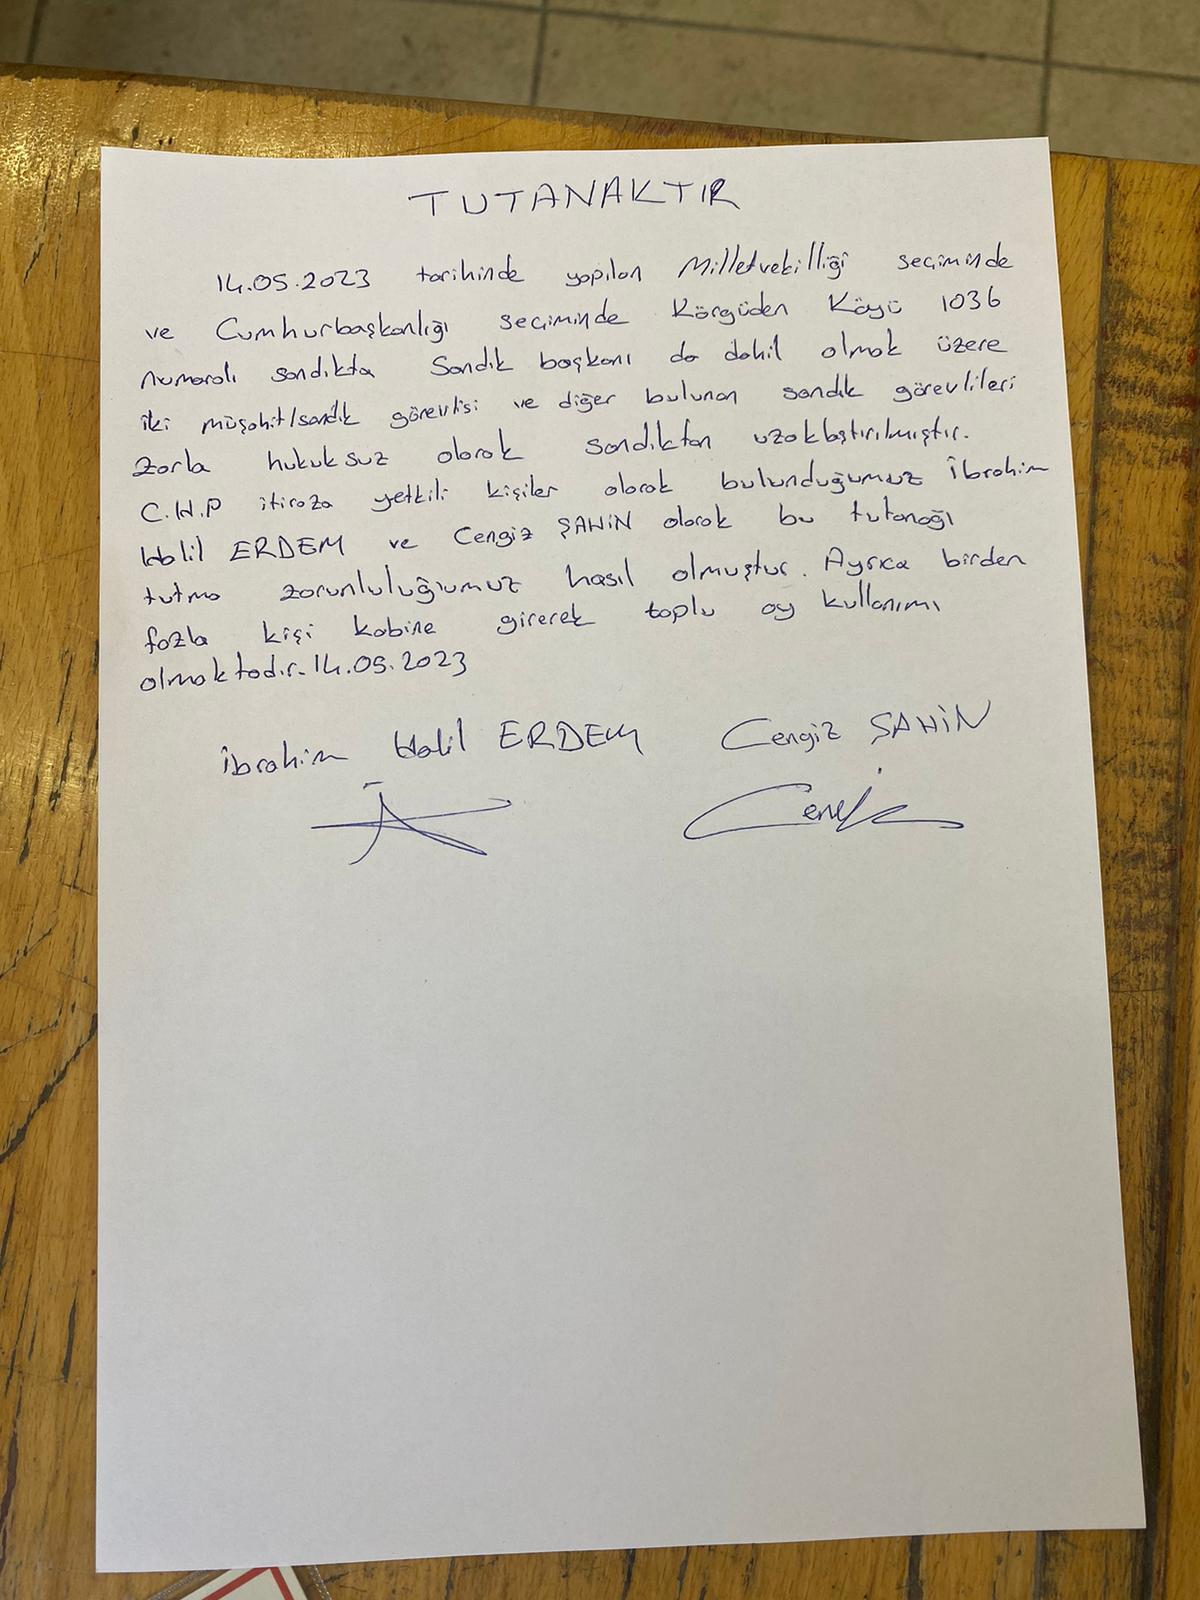 TUTANAKTIR
14.05.2023 tarihinde yapılan Milletvekilliği seçiminde
ve Cumhurbaşkanlığı seçiminde Körgüden Köyü 1036
numaralı sandıkta Sandık başkanı da dahil olmak üzere
iki müşahit/sandık görevlisi ve diğer bulunan sandık görevlileri
zorla hukuksuz olarak sandıktan uzaklaştırılmıştır.
C.H.P itiraza yetkili kişiler olarak bulunduğumuz İbrahim
Halil ERDEM ve Cengiz ŞAHİN olarak bu tutanağı
tutma zorunluluğumuz hasıl olmuştur. Ayrıca birden
fazla kişi kabine girerek toplu oy kullanımı
olmaktadır. 14.05.2023
İbrahim Halil ERDEM Cengiz ŞAHİN